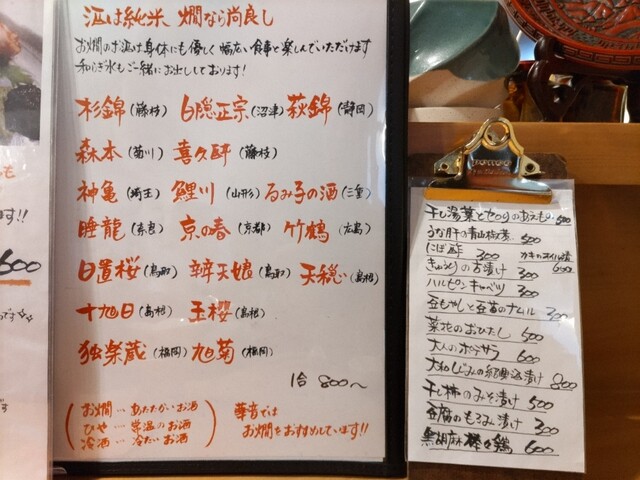 酒は純米、燗なら尚良し
お燗のお酒は身体にも優しく幅広い食事と楽しんでいただけます
和らぎ水もご一緒にお出ししております!
杉錦(藤枝) 白隠正宗(沼津) 萩錦(静岡)
森本(菊川) 喜久醉(藤枝)
神亀(埼玉) 鯉川(山形) るみ子の酒(三重)
睡龍(奈良) 京の春(京都) 竹鶴(広島)
日置桜(鳥取) 辨天娘(鳥取) 天穏(島根)
十旭日(島根) 玉櫻(島根)
独楽蔵(福岡) 旭菊(福岡)
1合 800〜
お燗…あたたかいお酒
ひや…常温のお酒
冷酒…冷たいお酒
華音では
お燗をおすすめしています!!
も
ます!!
600
です☆☆
干し湯葉とセロリのあえもの 500
うな肝の青山椒煮 500
にぼ酢 300
きゅうりのお漬け 300
ハルピンキャベツ 300
豆もやしと豆苗のナムル 300
菜花のおひたし 500
大人のポテサラ 600
大和しじみの紹興酒漬け 800
干し柿のみそ漬け 500
豆腐のもろみ漬け 300
黒胡麻棒々鶏 600